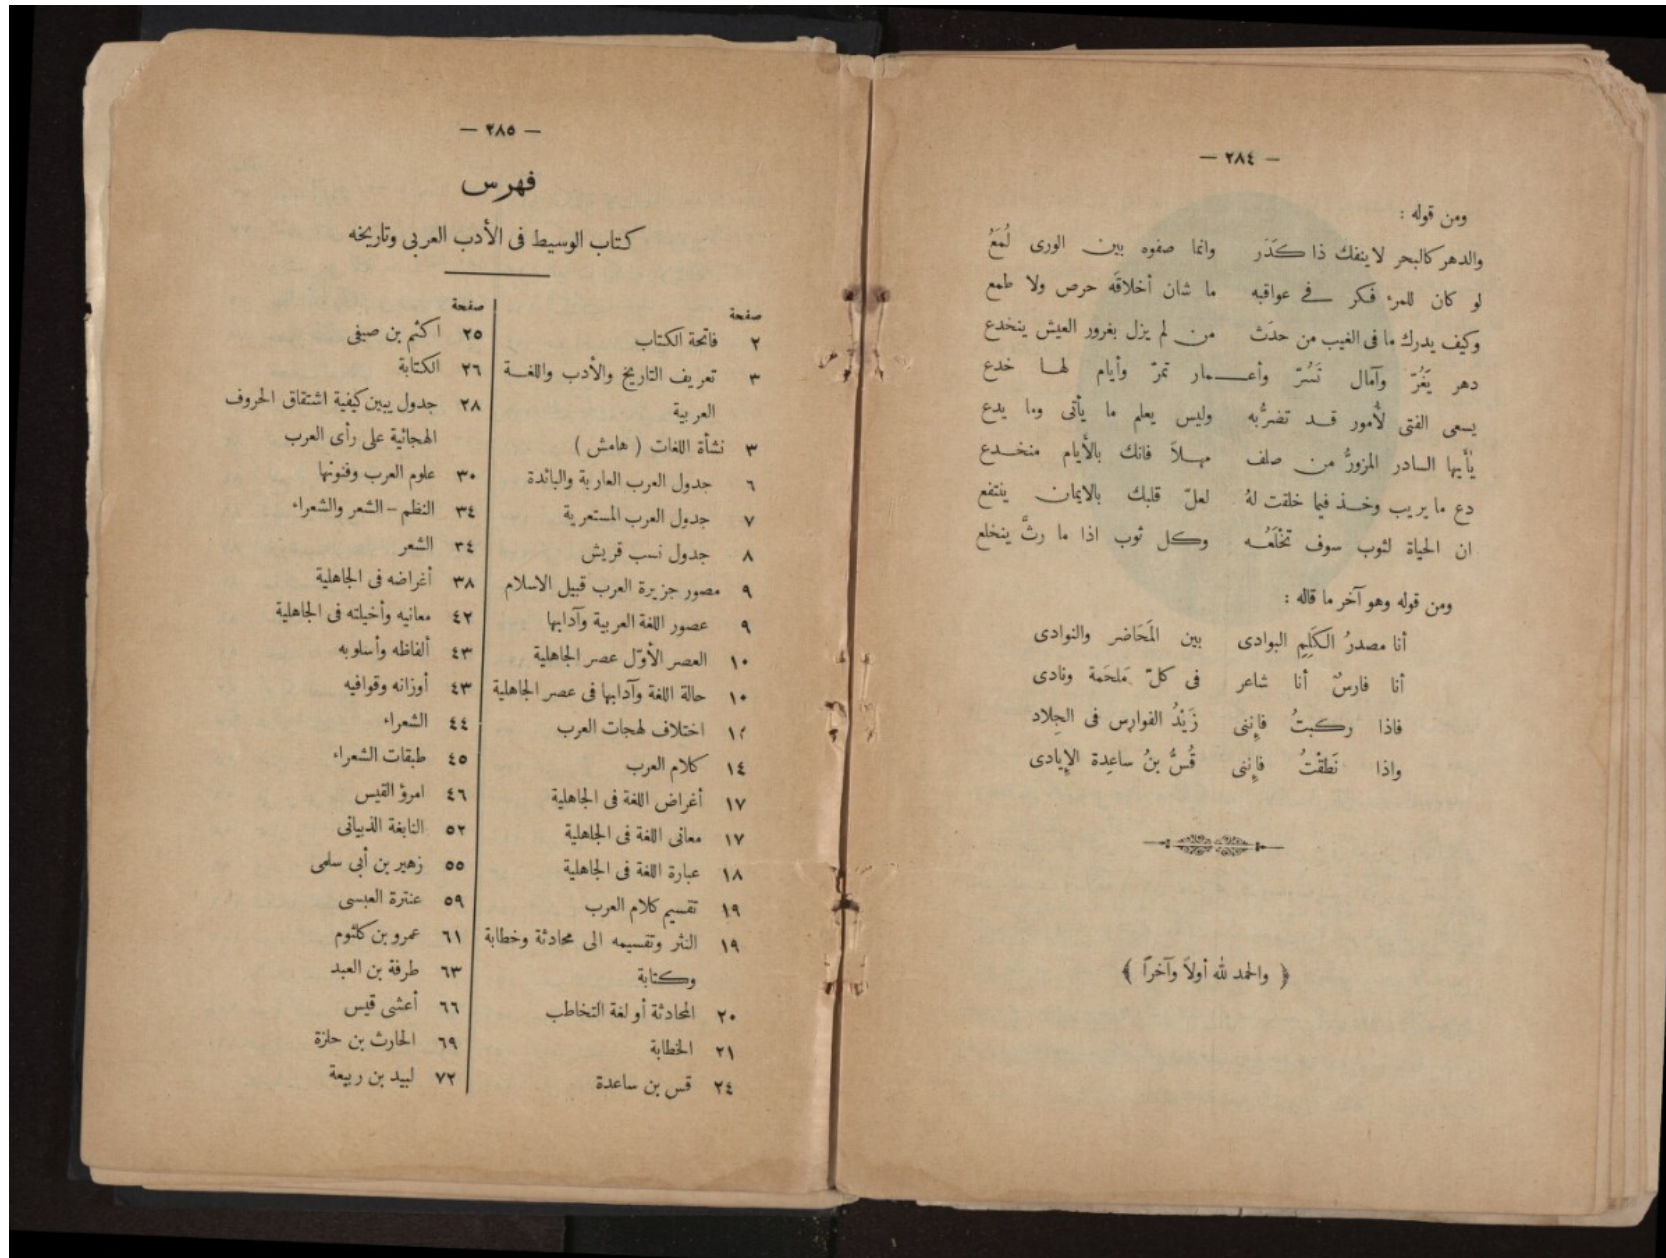 — ٢٨٤ —
ومن قوله :
والدهر كالبحر لا ينفك ذا كَدَر وانما صفوه بين الورى لُمَعُ
لو كان للمرء فكر في عواقبه ما شان أخلاقَه حرص ولا طمع
وكيف يدرك ما فى الغيب من حدَث من لم يزل بغرور العيش ينخدع
دهر يَغُرّ وآمال تَسُرّ وأعمار تمرّ وأيام لها خدع
يسعى الفتى لأُمور قد تضرُّ به وليس يعلم ما يأتى وما يدع
يٰأيها السادر المزورُّ من صلف مهلاً فانك بالأَيام منخدع
دع ما يريب وخذ فيما خلقت لهُ لعلّ قلبك بالايمان ينتفع
ان الحياة لثوب سوف تَخْلَعُه وكل ثوب اذا ما رثَّ ينخلع
ومن قوله وهو آخر ما قاله :
أنا مصدرُ الكَلِمِ البوادى بين المَحَاضر والنوادى
أنا فارسٌ أنا شاعر فى كلّ مَلحَمة ونادى
فاذا ركبتُ فإننى زَيْدُ الفوارِس فى الجِلاد
واذا نَطَقْتُ فإننى قُسُّ بنُ ساعِدة الإِيادى
﴿ والحمد لله أولاً وآخراً ﴾
— ٢٨٥ —
فهرس
كتاب الوسيط فى الأدب العربى وتاريخه
صفحة
٢ فاتحة الكتاب
٣ تعريف التاريخ والأدب واللغة
العربية
٣ نشأة اللغات ( هامش )
٦ جدول العرب العاربة والبائدة
٧ جدول العرب المستعربة
٨ جدول نسب قريش
٩ مصور جزيرة العرب قبيل الاسلام
٩ عصور اللغة العربية وآدابها
١٠ العصر الأوّل عصر الجاهلية
١٠ حالة اللغة وآدابها فى عصر الجاهلية
١٢ اختلاف لهجات العرب
١٤ كلام العرب
١٧ أغراض اللغة فى الجاهلية
١٧ معانى اللغة فى الجاهلية
١٨ عبارة اللغة فى الجاهلية
١٩ تقسيم كلام العرب
١٩ النثر وتقسيمه الى محادثة وخطابة
وكتابة
٢٠ المحادثة أو لغة التخاطب
٢١ الخطابة
٢٤ قس بن ساعدة
صفحة
٢٥ اكثم بن صيفى
٢٦ الكتابة
٢٨ جدول يبين كيفية اشتقاق الحروف
الهجائية على رأى العرب
٣٠ علوم العرب وفنونها
٣٤ النظم – الشعر والشعراء
٣٤ الشعر
٣٨ أغراضه فى الجاهلية
٤٢ معانيه وأخيلته فى الجاهلية
٤٣ ألفاظه وأسلوبه
٤٣ أوزانه وقوافيه
٤٤ الشعراء
٤٥ طبقات الشعراء
٤٦ امرؤ القيس
٥٢ النابغة الذبيانى
٥٥ زهير بن أبى سلمى
٥٩ عنترة العبسى
٦١ عمرو بن كلثوم
٦٣ طرفة بن العبد
٦٦ أعشى قيس
٦٩ الحارث بن حلزة
٧٢ لبيد بن ربيعة